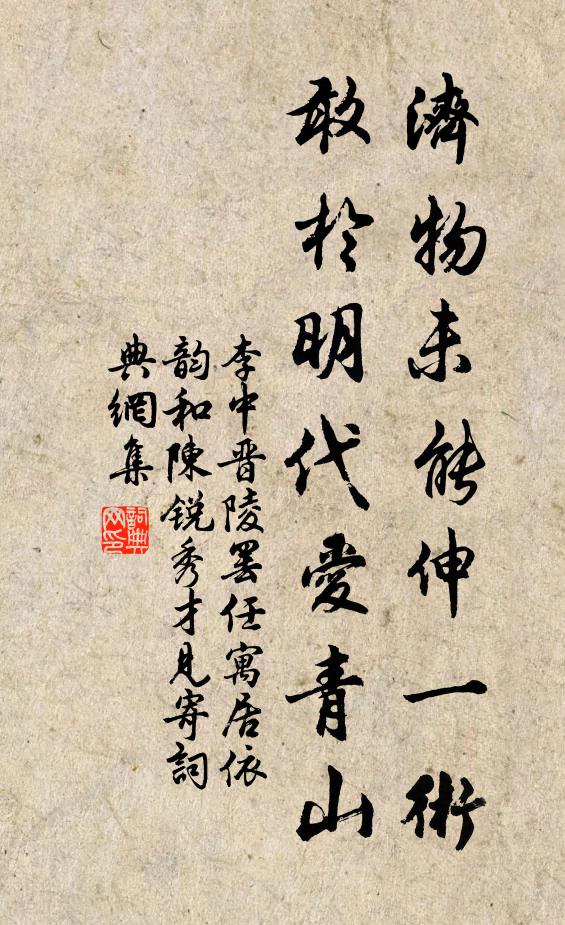 濟物未能伸一術
敢於明代愛青山
李中晋陵罷任寓居依
韵和陳銳秀才見寄詞
典網集
詞典
网印